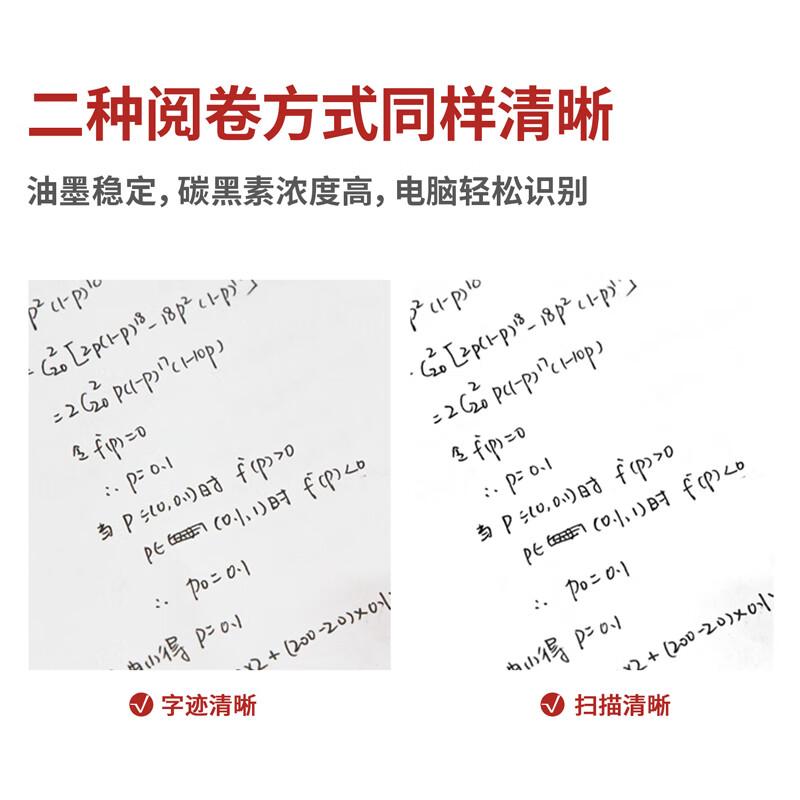 二种阅卷方式同样清晰
油墨稳定，碳黑素浓度高，电脑轻松识别
p²(1-p)¹⁸
= C₂₀² [2p(1-p)¹⁸ - 18p²(1-p)¹⁷]
= 2C₂₀² p(1-p)¹⁷(1-10p)
令 f'(p)=0
∴ p=0.1
当 p=(0,0.1)时 f'(p)>0
p∈ (0.1,1)时 f'(p)<0
∴ p₀=0.1
由(1)得 p=0.1
×2+(200-20)×0.1
p²(1-p)¹⁸
C₂₀² [2p(1-p)¹⁸ - 18p²(1-p)¹⁷]
= 2C₂₀² p(1-p)¹⁷(1-10p)
令 f'(p)=0
∴ p=0.1
当 p=(0,0.1)时 f'(p)>0
p∈ (0.1,1)时 f'(p)<0
∴ p₀=0.1
由(1)得 p=0.1
×2+(200-20)×0.1
字迹清晰
扫描清晰